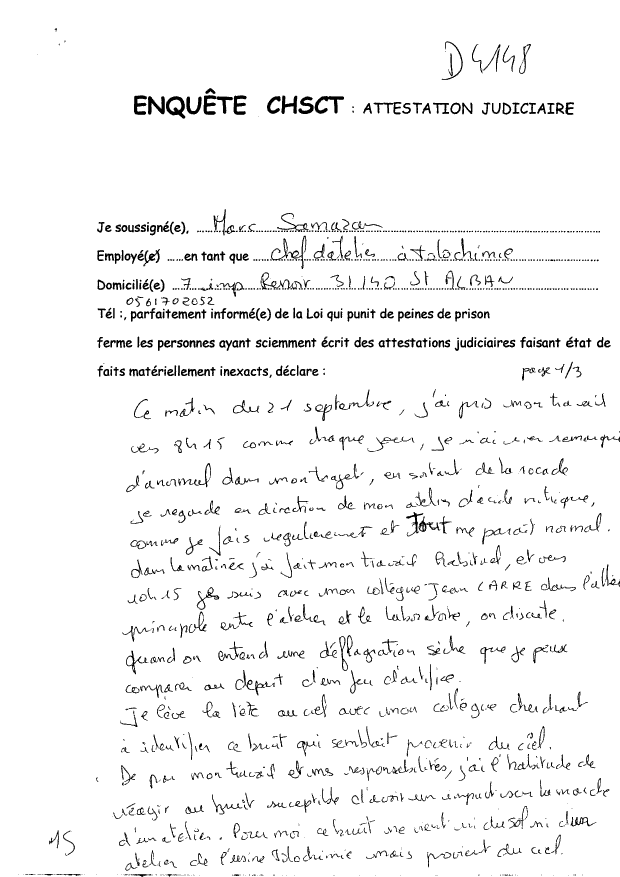 D4148
ENQUÊTE CHSCT : ATTESTATION JUDICIAIRE
Je soussigné(e), Marc Samazan
Employé(e) en tant que chef d'atelier à tolochimie
Domicilié(e) 7 imp Renoir 31140 St ALBAN
0561702052
Tél :, parfaitement informé(e) de la Loi qui punit de peines de prison
ferme les personnes ayant sciemment écrit des attestations judiciaires faisant état de
faits matériellement inexacts, déclare :
page 1/3
Ce matin du 21 septembre, j'ai pris mon travail
vers 8h15 comme chaque jour, je n'ai rien remarqué
d'anormal dans mon trajet, en sortant de la rocade
je regarde en direction de mon atelier d'acide nitrique,
comme je fais regulierement et tout me parait normal.
dans la matinée j'ai fait mon travail habituel, et vers
10h15 je suis avec mon collègue Jean CARRE dans l'allée
principale entre l'atelier et le laboratoire, on discute.
quand on entend une déflagration sèche que je peux
comparer au depart d'un feu d'artifice.
Je lève la tête au ciel avec mon collègue cherchant
à identifier ce bruit qui semblait provenir du ciel.
De par mon travail et mes responsabilités, j'ai l'habitude de
réagir au bruit suceptible d'avoir un impact sur la marche
d'un atelier. Pour moi ce bruit ne vient ni du sol ni d'un
atelier de l'usine Tolochimie mais provient du ciel.
15